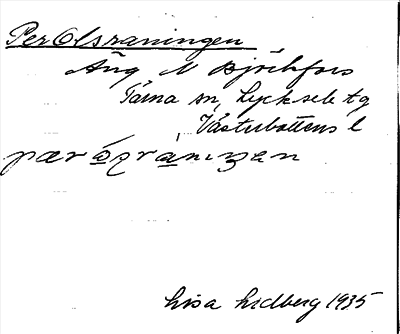 PerOlsraningen
Ång N Björkfors
Tärna sn, Lycksele tg
Västerbottens l
pær ɷ̀ʂrànıŋən
Lisa Lidberg 1935